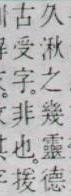 久湫之幾靈德
古受字非也援